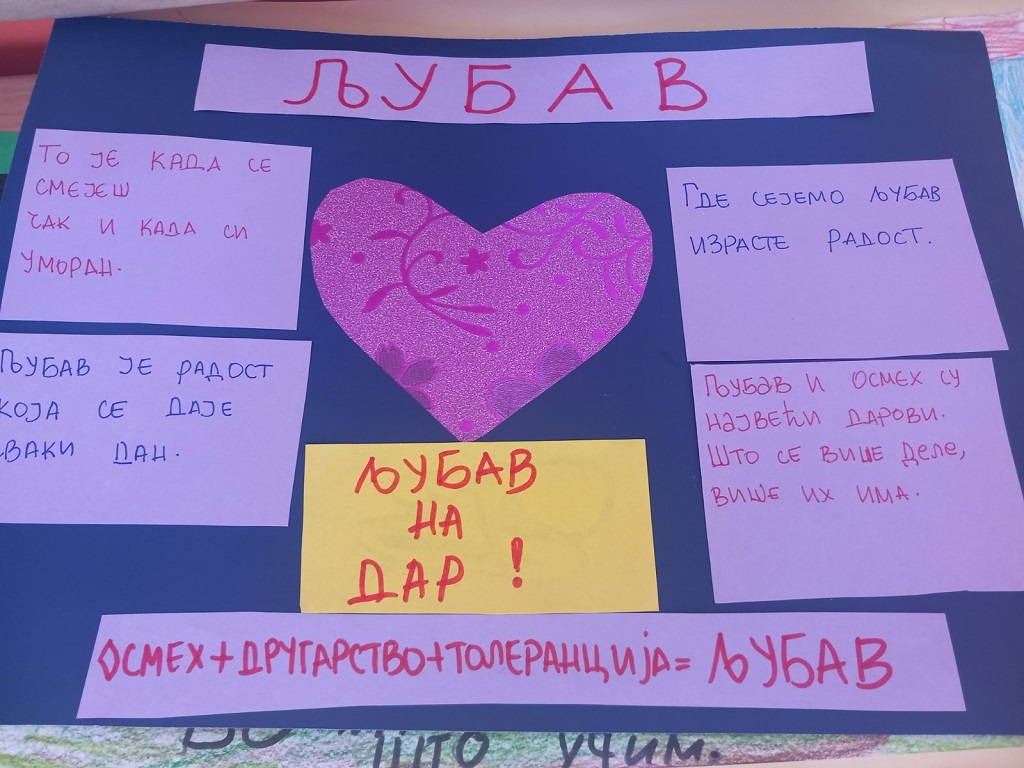 ЉУБАВ
ТО ЈЕ КАДА СЕ
СМЕЈЕШ
ЧАК И КАДА СИ
УМОРАН.
ЉУБАВ ЈЕ РАДОСТ
КОЈА СЕ ДАЈЕ
СВАКИ ДАН.
ГДЕ СЕЈЕМО ЉУБАВ
ИЗРАСТЕ РАДОСТ.
ЉУБАВ И ОСМЕХ СУ
НАЈВЕЋИ ДАРОВИ.
ШТО СЕ ВИШЕ ДЕЛЕ,
ВИШЕ ИХ ИМА.
ЉУБАВ
НА
ДАР !
ОСМЕХ+ДРУГАРСТВО+ТОЛЕРАНЦИЈА= ЉУБАВ
ШТО УЧИМ.